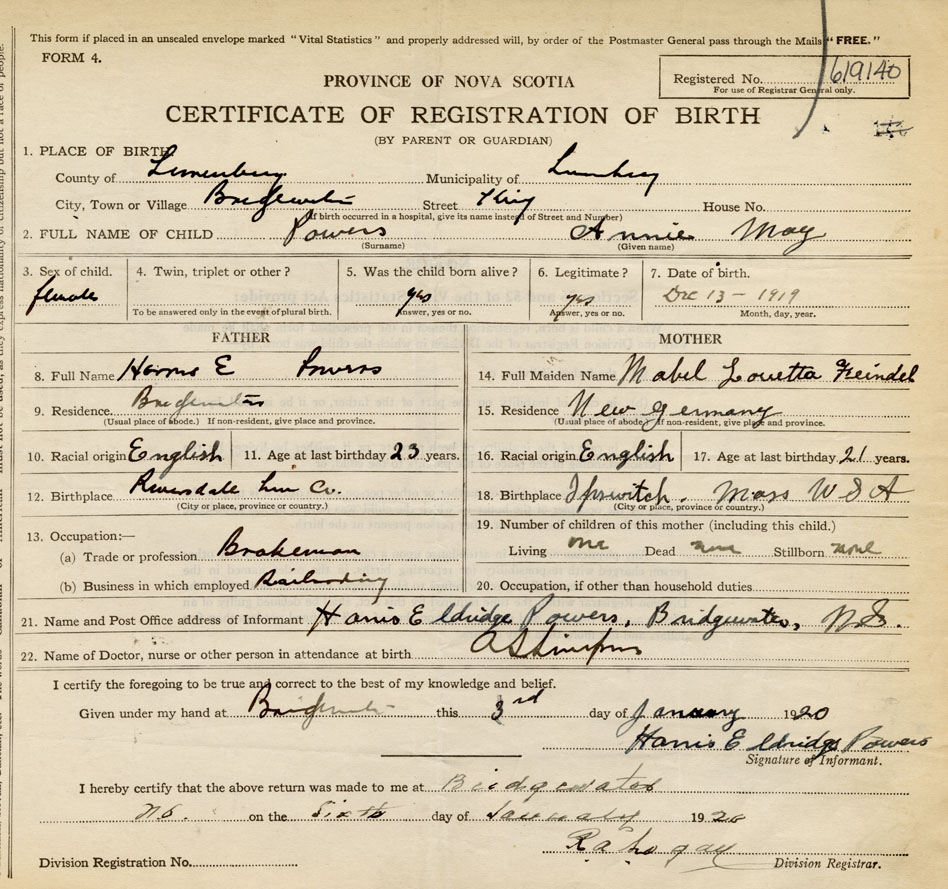 This form if placed in an unsealed envelope marked "Vital Statistics" and properly addressed will, by order of the Postmaster General pass through the Mails "FREE."
FORM 4.
Registered No. 619140
For use of Registrar General only.
PROVINCE OF NOVA SCOTIA
CERTIFICATE OF REGISTRATION OF BIRTH
(BY PARENT OR GUARDIAN)
1. PLACE OF BIRTH
County of Lunenburg Municipality of
City, Town or Village Bridgewater Street King House No.
(If birth occurred in a hospital, give its name instead of Street and Number)
2. FULL NAME OF CHILD Powers Annie May
(Surname) (Given name)
3. Sex of child. 4. Twin, triplet or other? 5. Was the child born alive? 6. Legitimate? 7. Date of birth.
female yes yes Dec 13 - 1919
To be answered only in the event of plural birth. Answer, yes or no. Answer, yes or no. Month, day, year.
FATHER
8. Full Name Harris E Powers
9. Residence. Bridgewater
(Usual place of abode.) If non-resident, give place and province.
10. Racial origin English 11. Age at last birthday 23 years.
12. Birthplace Riversdale Lun Co.
(City or place, province or country.)
13. Occupation:—
(a) Trade or profession Brakeman
(b) Business in which employed Railroading
MOTHER
14. Full Maiden Name Mabel Louetta Feindel
15. Residence New Germany
(Usual place of abode) If non-resident, give place and province.
16. Racial origin English 17. Age at last birthday 21 years.
18. Birthplace Ipswitch. Mass U S A
(City or place, province or country.)
19. Number of children of this mother (including this child.)
Living one Dead none Stillborn none
20. Occupation, if other than household duties
21. Name and Post Office address of Informant Harris Eldridge Powers, Bridgewater, N.S.
22. Name of Doctor, nurse or other person in attendance at birth
I certify the foregoing to be true and correct to the best of my knowledge and belief.
Given under my hand at Bridgewater this 3rd day of January 1920
Harris Eldridge Powers
Signature of Informant.
I hereby certify that the above return was made to me at Bridgewater
N.S. on the Sixth day of January 1920
Division Registration No. Division Registrar.